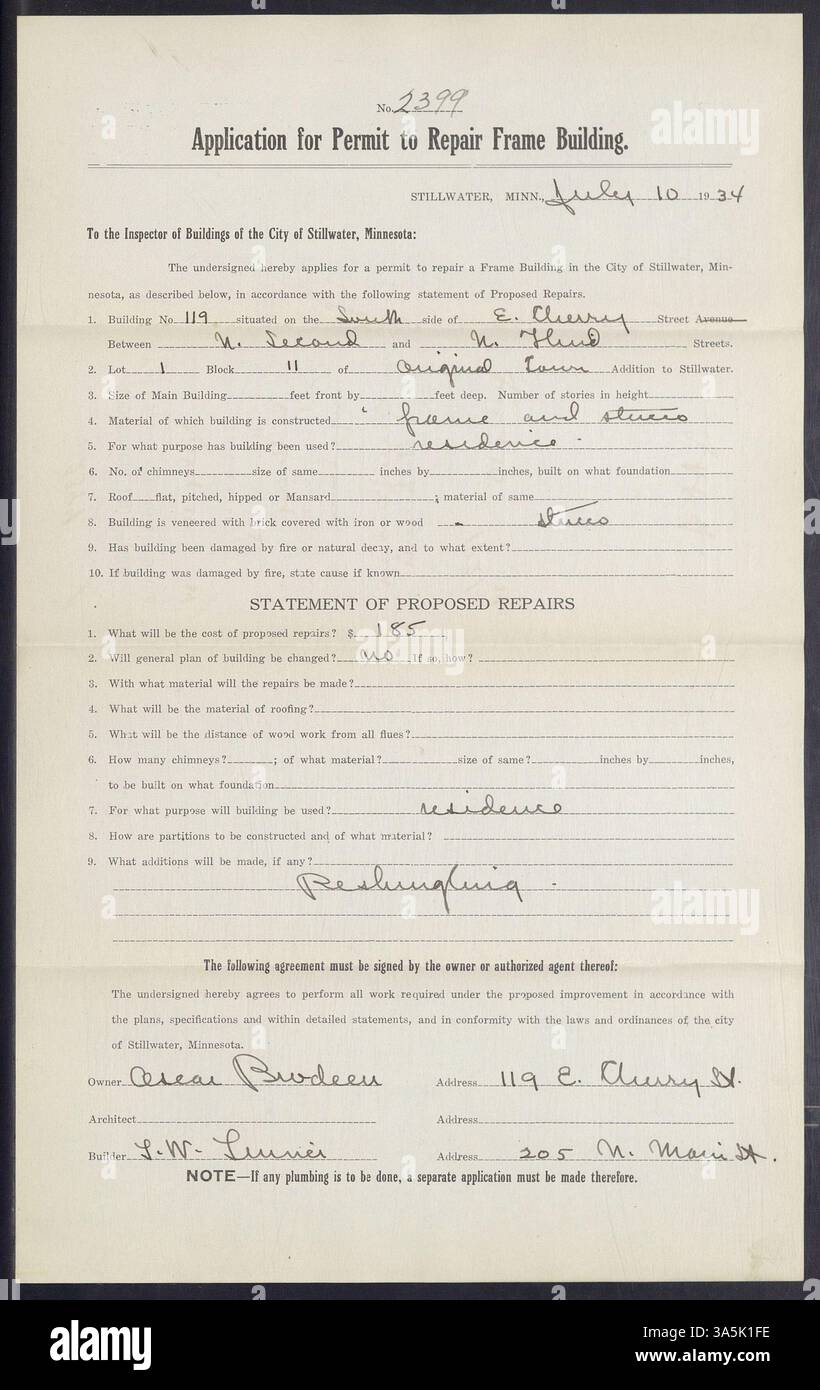 No. 2399
Application for Permit to Repair Frame Building.
STILLWATER, MINN., July 10 1934
To the Inspector of Buildings of the City of Stillwater, Minnesota:
The undersigned hereby applies for a permit to repair a Frame Building in the City of Stillwater, Min-
nesota, as described below, in accordance with the following statement of Proposed Repairs.
1. Building No 119 situated on the South side of E. Cherry Street Avenue
Between N. Second and N. Third Streets.
2. Lot 1 Block 11 of Original Town Addition to Stillwater.
3. Size of Main Building feet front by feet deep. Number of stories in height
4. Material of which building is constructed frame and stucco
5. For what purpose has building been used? residence
6. No. of chimneys size of same inches by inches, built on what foundation
7. Roof flat, pitched, hipped or Mansard ; material of same
8. Building is veneered with brick covered with iron or wood - stucco
9. Has building been damaged by fire or natural decay, and to what extent?
10. If building was damaged by fire, state cause if known
STATEMENT OF PROPOSED REPAIRS
1. What will be the cost of proposed repairs? $ 185
2. Will general plan of building be changed? no If so, how?
3. With what material will the repairs be made?
4. What will be the material of roofing?
5. What will be the distance of wood work from all flues?
6. How many chimneys? ; of what material? size of same? inches by inches,
to be built on what foundation
7. For what purpose will building be used? residence
8. How are partitions to be constructed and of what material?
9. What additions will be made, if any?
Reshingling
The following agreement must be signed by the owner or authorized agent thereof:
The undersigned hereby agrees to perform all work required under the proposed improvement in accordance with
the plans, specifications and within detailed statements, and in conformity with the laws and ordinances of the city
of Stillwater, Minnesota.
Owner Oscar Brodeen Address 119 E. Cherry St.
Architect Address
Builder W. Address 205 N. Main St.
NOTE—If any plumbing is to be done, a separate application must be made therefore.
alamy
Image ID: 3A5K1FE
www.alamy.com